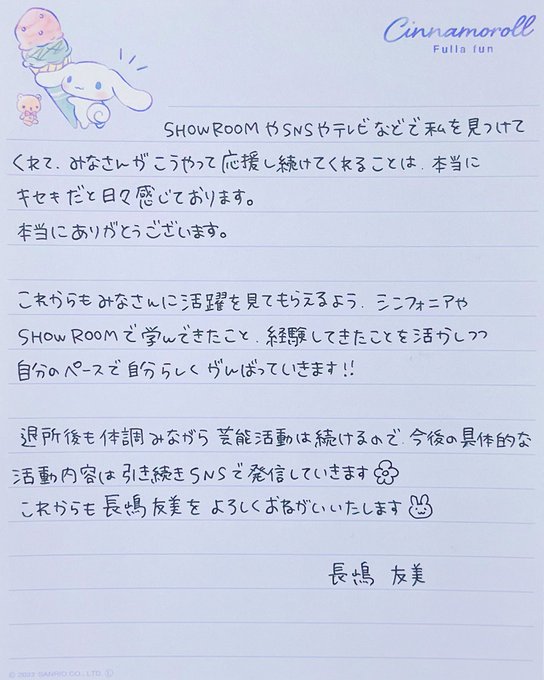 Cinnamoroll
Fulla fun
SHOWROOMやSNSやテレビなどで私を見つけて
くれて、みなさんがこうやって応援し続けてくれることは、本当に
キセキだと日々感じております。
本当にありがとうございます。
これからもみなさんに活躍を見てもらえるよう、シンフォニアや
SHOWROOMで学んできたこと、経験してきたことを活かしつつ
自分のペースで自分らしくがんばっていきます!!
退所後も体調みながら芸能活動は続けるので、今後の具体的な
活動内容は引き続きSNSで発信していきます
これからも長嶋友美をよろしくおねがいいたします
長嶋 友美
© 2022 SANRIO CO., LTD. Ⓛ